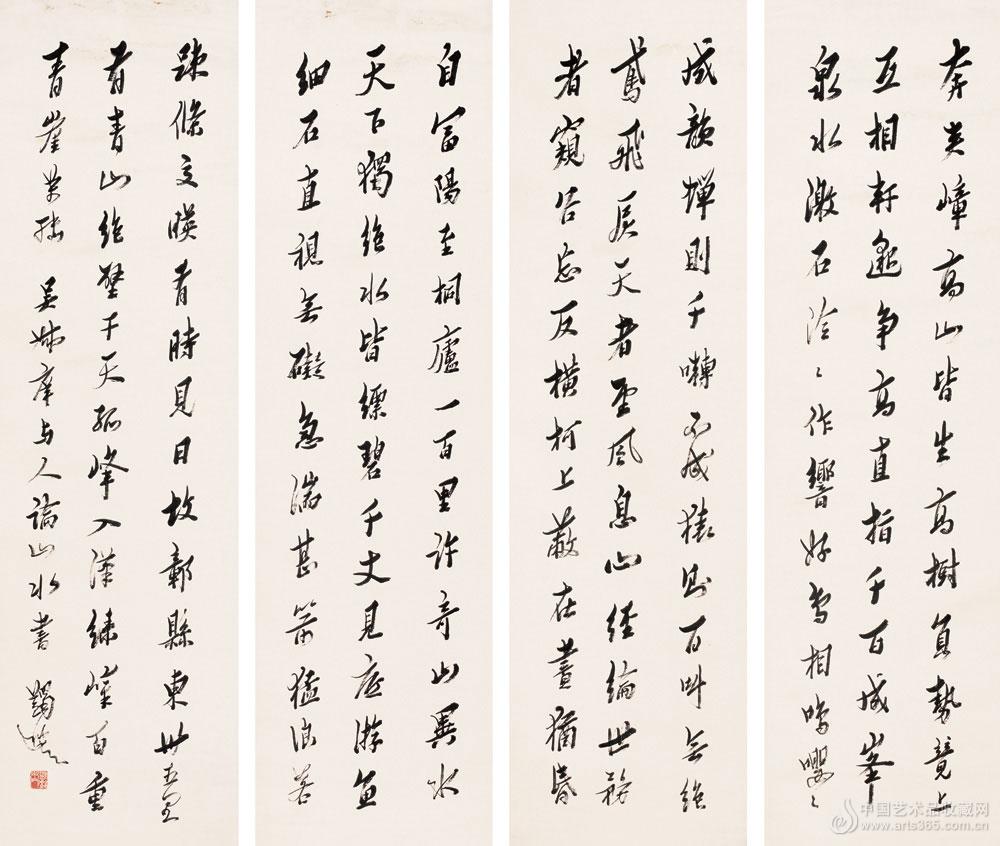 奔夾嶂高山皆生高樹負勢競上
互相軒邈爭高直指千百成峯
泉水激石泠々作響好鳥相鳴嚶々
成韻蟬則千囀不成猿則百叫無絶
鳶飛戾天者望風息心經綸世務
者窺谷忘反橫柯上蔽在晝猶昏
自富陽至桐廬一百里許奇山異水
天下獨絶水皆縹碧千丈見底游魚
細石直視無礙急湍甚箭猛浪若
疎條交映有時見日故鄣縣東卅五里
有青山絶壁干天孤峰入漢綠嶂百重
青崖萬轉 吴叔庠与人論山水書
中国艺术品收藏网
www.arts365.com.cn